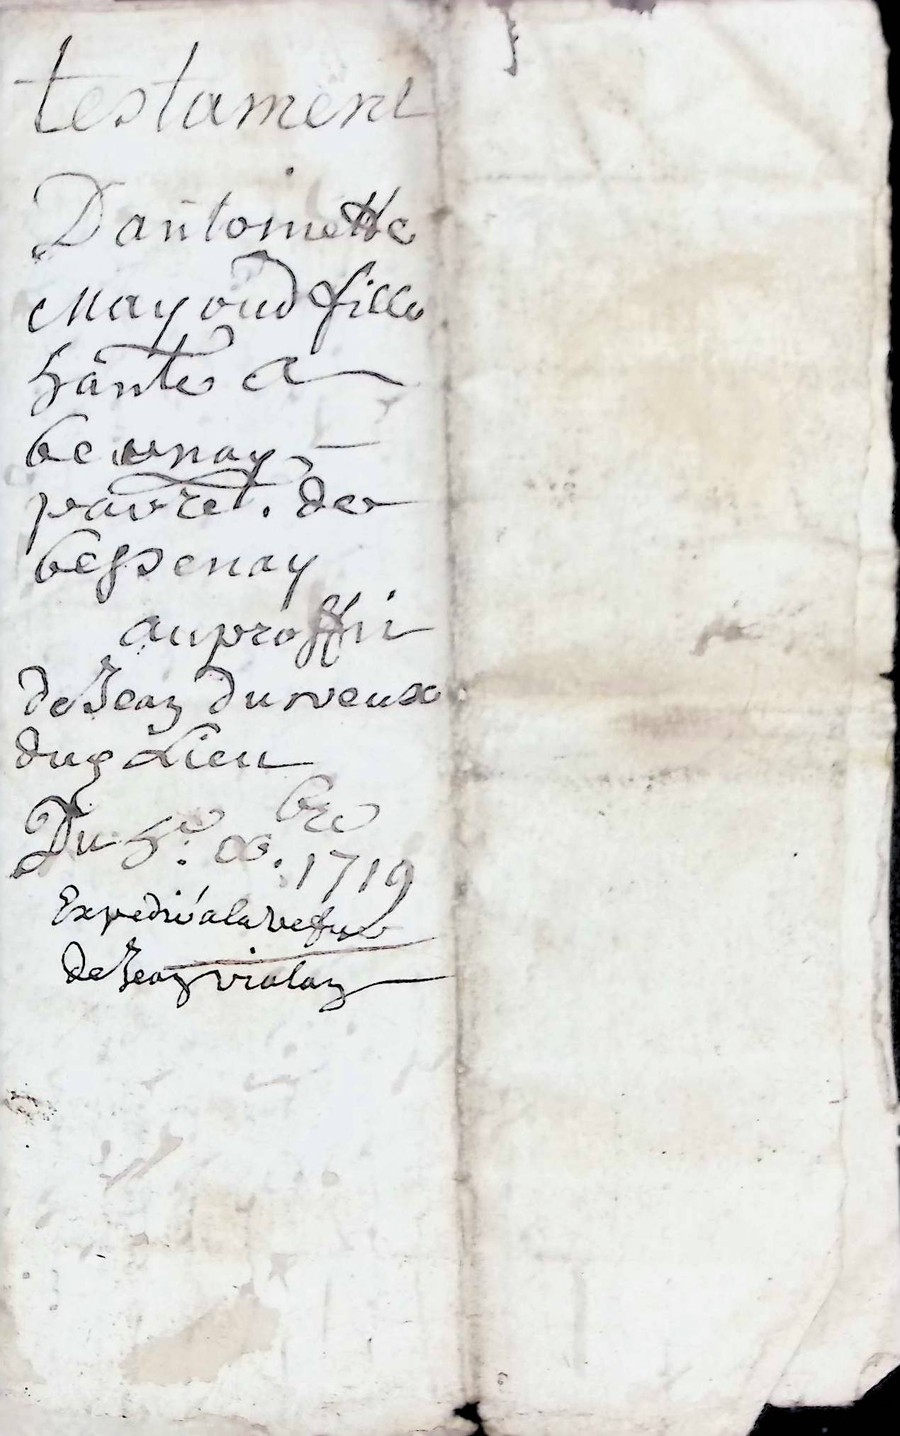 testament
Dantoinette
Mayoud fille
hante a
bernay
parroet. de
bessenay
au proffit
de Jean durveux
dug Lieu
Du 5e. xbre. 1719
Expedié a la vefve
de Jean vialan